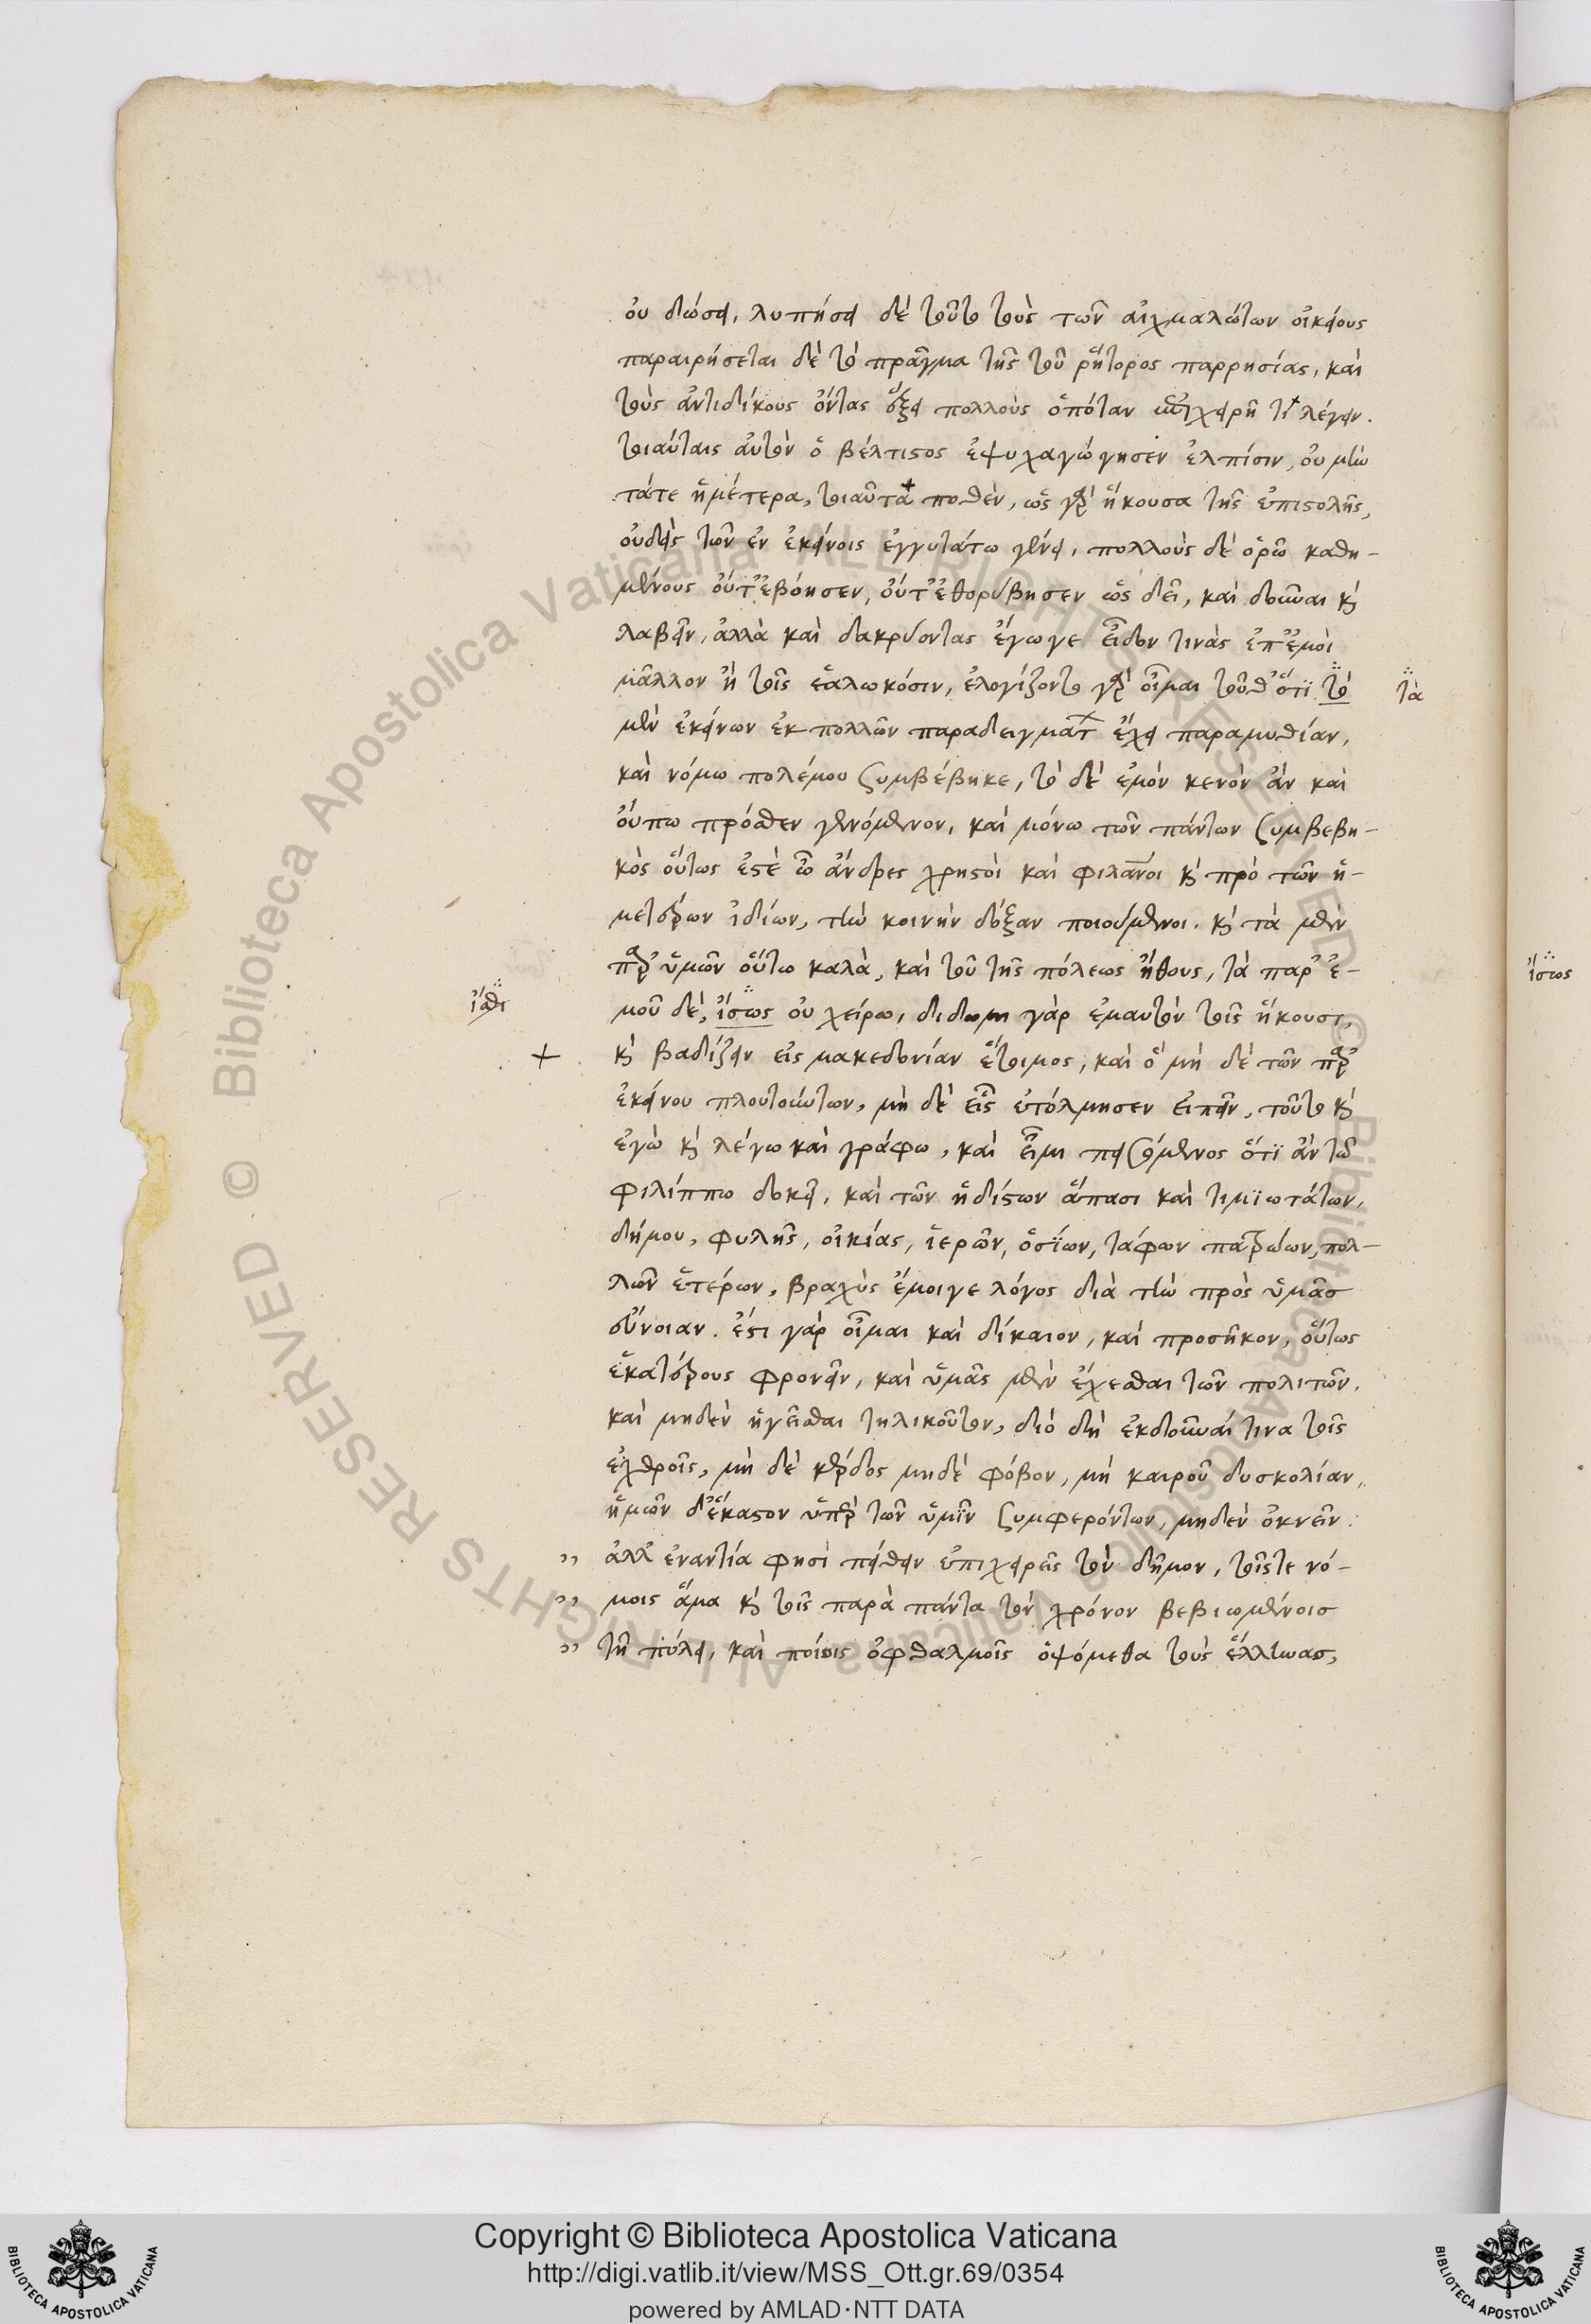 οὐ δώσει, λυπήσει δὲ τοῦτο τοὺς τῶν αἰχμαλώτων οἰκείους
παραιρήσεται δὲ τὸ πρᾶγμα τῆς τοῦ ῥήτορος παρρησίας, καὶ
τοὺς ἀντιδίκους ὄντας ἕξει πολλοὺς ὁπόταν ἐπιχειρῇ τι λέγειν.
τοιαύταις αὐτὸν ὁ βέλτιστος ἐψυχαγώγησεν ἐλπίσιν, οὐ μὴν
τάτε ἡμέτερα, τοιαῦτα ποθὲν, ὡς γὰρ ἤκουσα τῆς ἐπιστολῆς,
οὐδεὶς τῶν ἐν ἐκείνοις ἐγγυτάτω γένει, πολλοὺς δὲ ὁρῶ καθη-
μένους οὔτ' ἐβόησεν, οὔτ' ἐθορύβησεν ὡς δεῖ, καὶ δοῦναι καὶ
λαβεῖν, ἀλλὰ καὶ δακρύοντας ἔγωγε εἶδον τινὰς ἐπ' ἐμοὶ
μᾶλλον ἢ τοῖς ἑαλωκόσιν, ἐλογίζοντο γὰρ οἶμαι τοῦθ' ὅτι τὸ τὰ
μὲν ἐκείνων ἐκ πολλῶν παραδειγμάτ ἔχει παραμυθίαν,
καὶ νόμω πολέμου ξυμβέβηκε, τὸ δὲ ἐμὸν κενὸν ἂν καὶ
οὔπω πρόσθεν γενόμενον, καὶ μόνω τῶν πάντων ξυμβεβη-
κὸς οὕτως ἐστὲ ὦ ἄνδρες χρηστοὶ καὶ φιλᾶνοι καὶ πρὸ τῶν ἡ-
μετέρων ἰδίων, τὴν κοινὴν δόξαν ποιούμενοι. καὶ τὰ μὲν
παρ' ὑμῶν οὕτω καλὰ, καὶ τοῦ τῆς πόλεως ἤθους, τὰ παρ' ἐ-
ἴσθι μοῦ δὲ, ἴστως οὐ χείρω, δίδωμι γὰρ ἐμαυτὸν τοῖς ἥκουσι,
+ καὶ βαδίζειν εἰς μακεδονίαν ἕτοιμος, καὶ ὃ μὴ δὲ τῶν παρ'
ἐκείνου πλουτούντων, μὴ δὲ εἷς ἐτόλμησεν εἰπεῖν, τοῦτο καὶ
ἐγὼ καὶ λέγω καὶ γράφω, καὶ εἶμι πεισόμενος ὅτι ἂν τῶ
φιλίππω δοκεῖ, καὶ τῶν ἡδίστων ἅπασι καὶ τιμιωτάτων,
δήμου, φυλῆς, οἰκίας, ἱερῶν, ὁσίων, τάφων πατρώων, πολ-
λῶν ἑτέρων, βραχὺς ἔμοιγε λόγος διὰ τὴν πρὸς ὑμᾶς
εὔνοιαν. ἔστι γὰρ οἶμαι καὶ δίκαιον, καὶ προσῆκον, οὕτως
ἑκατέρους φρονεῖν, καὶ ὑμᾶς μὲν ἔχεσθαι τῶν πολιτῶν,
καὶ μηδὲν ἡγεῖσθαι τηλικοῦτον, διὸ δὴ ἐκδοῦναί τινα τοῖς
ἐχθροῖς, μὴ δὲ κέρδος μηδὲ φόβον, μὴ καιροῦ δυσκολίαν,
ἡμῶν δ' ἕκαστον ὑπὲρ τῶν ὑμῖν ξυμφερόντων, μηδὲν ὀκνεῖν.
" ἀλλ' ἐναντία φησὶ πείθειν ἐπιχειρεῖς τὸν δῆμον, τοῖς τε νό-
" μοις ἅμα καὶ τοῖς παρὰ πάντα τὸν χρόνον βεβιωμένοις
" τῇ πόλει, καὶ ποίοις ὀφθαλμοῖς ὀψόμεθα τοὺς ἕλληνας,
ἴστως
Copyright © Biblioteca Apostolica Vaticana
http://digi.vatlib.it/view/MSS_Ott.gr.69/0354
powered by AMLAD·NTT DATA
BIBLIOTECA APOSTOLICA VATICANA
BIBLIOTECA APOSTOLICA VATICANA
© Biblioteca Apostolica Vaticana ALL RIGHTS RESERVED
© Biblioteca Apostolica Vaticana ALL RIGHTS RESERVED